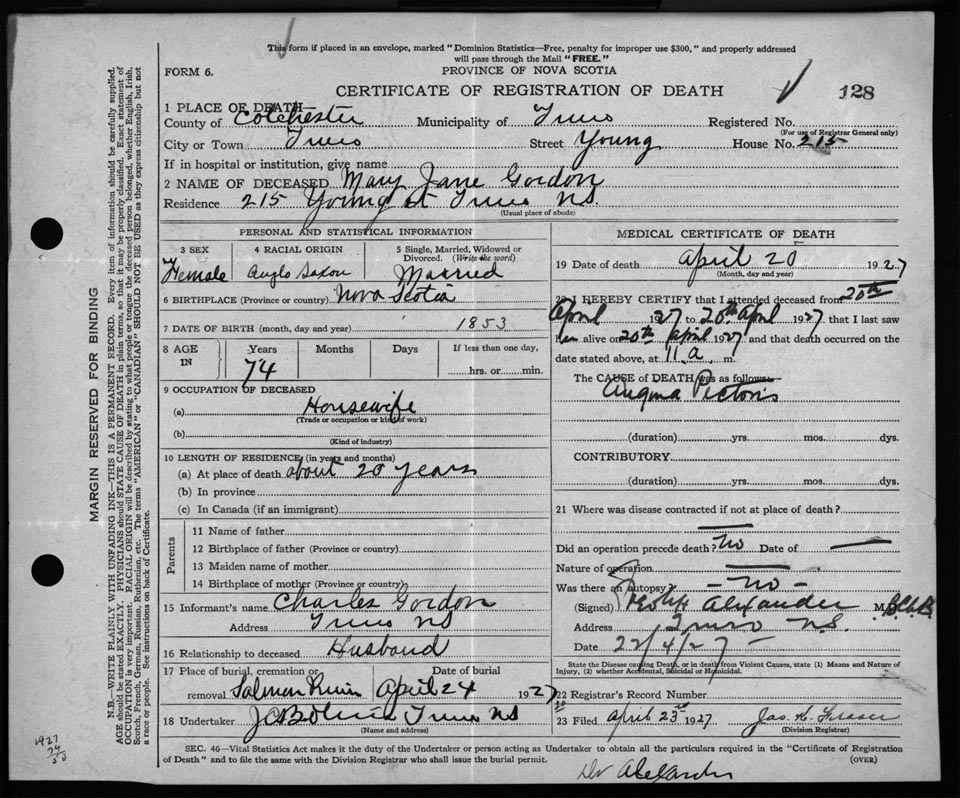 This form if placed in an envelope, marked "Dominion Statistics—Free, penalty for improper use $300," and properly addressed
will pass through the Mail "FREE."
FORM 6.
PROVINCE OF NOVA SCOTIA
CERTIFICATE OF REGISTRATION OF DEATH
128
1 PLACE OF DEATH
County of Colchester Municipality of Truro Registered No.
(For use of Registrar General only)
City or Town Truro Street Young House No. 215
If in hospital or institution, give name
2 NAME OF DECEASED Mary Jane Gordon
Residence 215 Young St Truro NS.
(Usual place of abode)
PERSONAL AND STATISTICAL INFORMATION
3 SEX 4 RACIAL ORIGIN 5 Single, Married, Widowed or
Divorced. (Write the word)
Female Anglo Saxon Married
6 BIRTHPLACE (Province or country) Nova Scotia
7 DATE OF BIRTH (month, day and year) 1853
8 AGE IN Years Months Days If less than one day,
74 hrs. or min.
9 OCCUPATION OF DECEASED
(a) Housewife
(Trade or occupation or kind of work)
(b)
(Kind of industry)
10 LENGTH OF RESIDENCE (in years and months)
(a) At place of death about 20 years
(b) In province
(c) In Canada (if an immigrant)
Parents
11 Name of father
12 Birthplace of father (Province or country)
13 Maiden name of mother
14 Birthplace of mother (Province or country)
15 Informant's name Charles Gordon
Address Truro NS
16 Relationship to deceased Husband
17 Place of burial, cremation or Date of burial
removal Salmon River April 24 1927
18 Undertaker Truro NS
(Name and address)
MEDICAL CERTIFICATE OF DEATH
19 Date of death April 20 1927
(Month, day and year)
20 I HEREBY CERTIFY that I attended deceased from 20th
April 1927 to 20th April 1927 that I last saw
her alive on 20th April 1927 and that death occurred on the
date stated above, at 11 a. m.
The CAUSE of DEATH was as follows:
Angina Pectoris
(duration) yrs. mos. dys.
CONTRIBUTORY
(duration) yrs. mos. dys.
21 Where was disease contracted if not at place of death?
Did an operation precede death? No Date of —
Nature of operation —
Was there an autopsy? — No —
(Signed) Alexander M.B.Ch.B.
Address Truro N.S.
Date 22/4/27
State the Disease causing Death, or in death from Violent Causes, state (1) Means and Nature of
Injury, (2) whether Accidental, Suicidal or Homicidal.
22 Registrar's Record Number
23 Filed April 23rd 1927 Jas. H. Fraser
(Division Registrar)
SEC. 46—Vital Statistics Act makes it the duty of the Undertaker or person acting as Undertaker to obtain all the particulars required in the "Certificate of Registration
of Death" and to file the same with the Division Registrar who shall issue the burial permit. (OVER)
Dr Alexander
MARGIN RESERVED FOR BINDING
N.B.—WRITE PLAINLY WITH UNFADING INK—THIS IS A PERMANENT RECORD. Every item of information should be carefully supplied.
AGE should be stated EXACTLY. PHYSICIANS should STATE CAUSE OF DEATH in plain terms, so that it may be properly classified. Exact statement of
OCCUPATION is very important. RACIAL ORIGIN will be described by stating to what people or tongue the deceased person belonged, whether English, Irish,
Scotch, French, German, Russian, Ruthenian, etc. The terms "AMERICAN" or "CANADIAN" SHOULD NOT BE USED as they express citizenship but not
a race or people. See instructions on back of Certificate.
1927
74
53